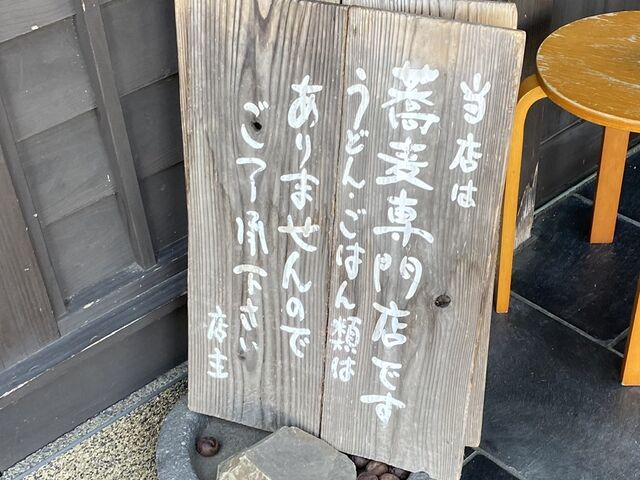 当店は
蕎麦専門店です
うどん・ごはん類は
ありませんので
ご了承下さい
店主